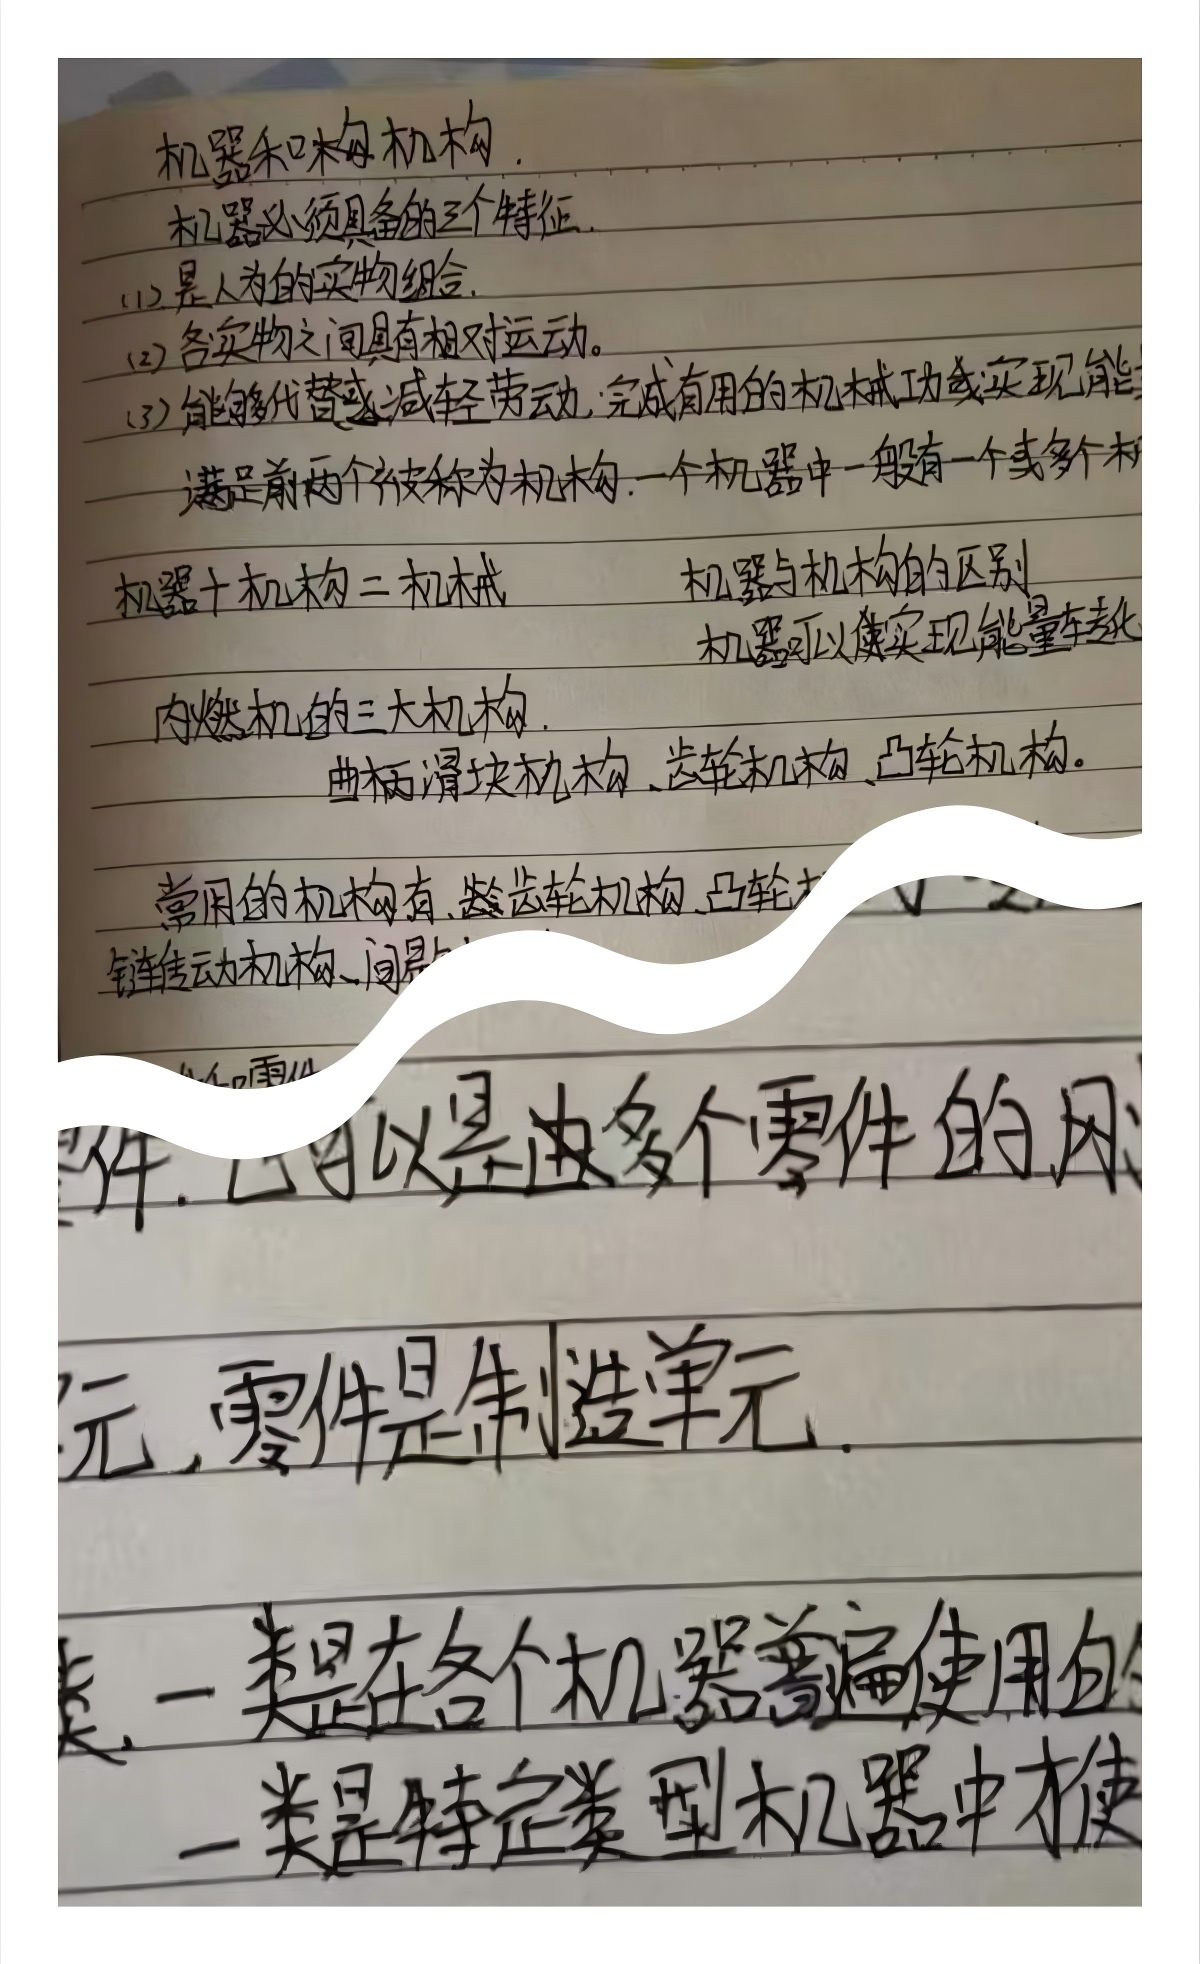 机器和机构机构.
机器必须具备的三个特征.
(1) 是人为的实物组合.
(2) 各实物之间具有相对运动。
(3) 能够代替或减轻劳动,完成有用的机械功或实现能
满足前两个被称为机构.一个机器中一般有一个或多个机
机器+机构=机械
机器与机构的区别
机器可以使实现能量转化
内燃机的三大机构.
曲柄滑块机构、齿轮机构、凸轮机构。
常用的机构有、齿轮机构、凸轮
链传动机构、间
零件
件.也可以是由多个零件的
元,零件是制造单元.
类,一类是在各个机器普遍使用的
一类是特定类型机器中才使